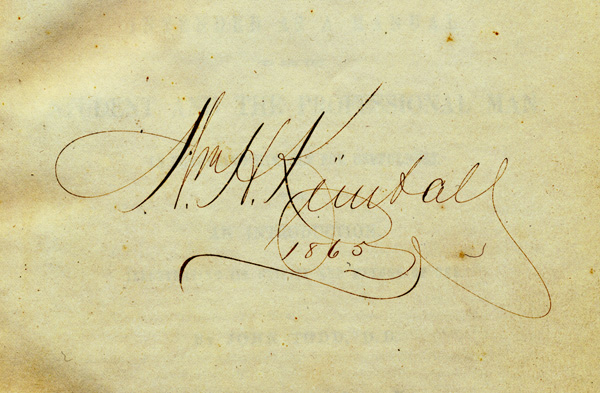 Wm. H. Kimball
1865